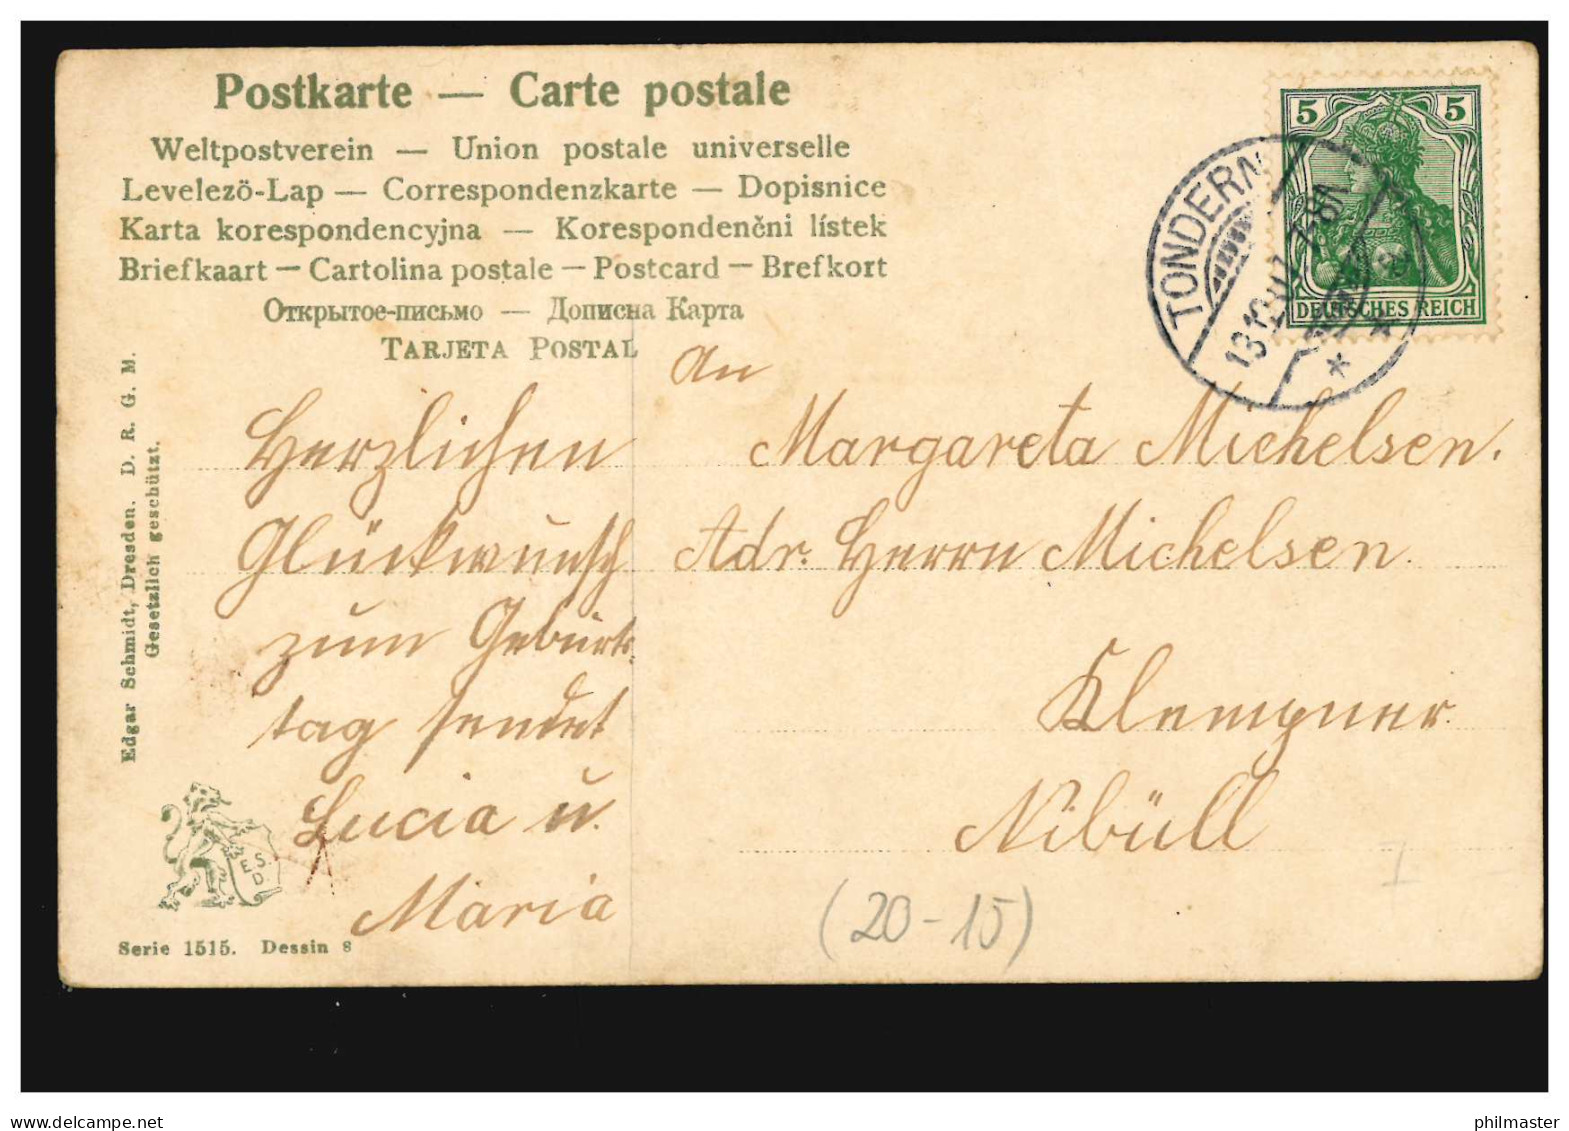 Postkarte — Carte postale
Weltpostverein — Union postale universelle
Levelező-Lap — Correspondenzkarte — Dopisnice
Karta korespondencyjna — Korespondenčni lístek
Briefkaart — Cartolina postale — Postcard — Brefkort
Открытое-письмо — Дописна Карта
TARJETA POSTAL
5 5
DEUTSCHES REICH
TONDERN
An
Margareta Michelsen.
Adr. Herrn Michelsen.
Klempner
Nibüll
Herzlichen
Glückwunsch
zum Geburts-
tag sendet
Lucia u.
Maria
Edgar Schmidt, Dresden. D. R. G. M.
Gesetzlich geschützt.
E. S.
D.
Serie 1515. Dessin 8
(20-15)
delcampe.net
philmaster